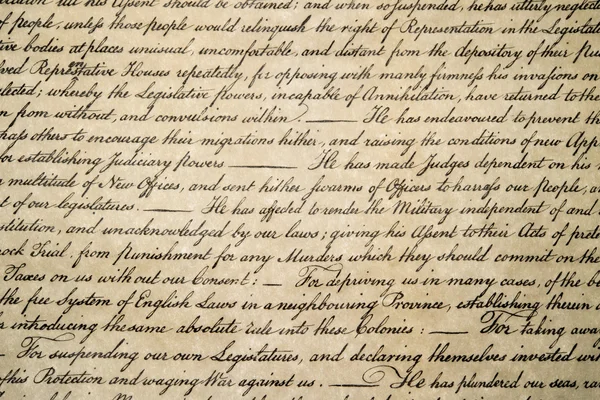 till his Assent should be obtained; and when so suspended, he has utterly neglecte
of people, unless those people would relinquish the right of Representation in the Legislat
tive bodies at places unusual, uncomfortable, and distant from the depository of their Pu
lved Representative Houses repeatedly, for opposing with manly firmness his invasions on
lected; whereby the Legislative powers, incapable of Annihilation, have returned to the
n from without, and convulsions within. — He has endeavoured to prevent th
pass others to encourage their migrations hither, and raising the conditions of new App
for establishing Judiciary powers — He has made Judges dependent on his
a multitude of New Offices, and sent hither swarms of Officers to harrass our people, a
t of our legislatures. — He has affected to render the Military independent of and
stitution, and unacknowledged by our laws; giving his Assent to their Acts of prete
ock Trial, from punishment for any Murders which they should commit on the
Taxes on us without our Consent: — For depriving us in many cases, of the be
the free System of English Laws in a neighbouring Province, establishing therein
r introducing the same absolute rule into these Colonies: — For taking awa
— For suspending our own Legislatures, and declaring themselves invested wi
of his Protection and waging War against us. — He has plundered our seas, ra